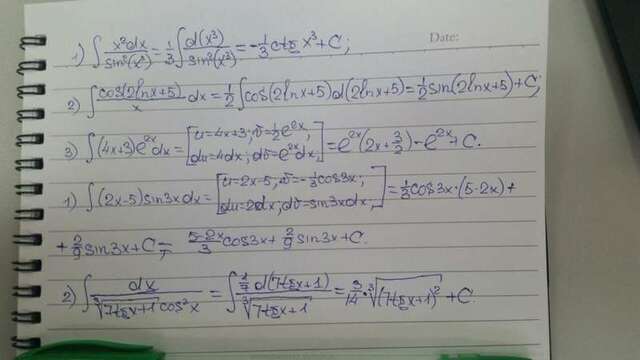 Date:
1) ∫ x²dx / sin²(x³) = 1/3 ∫ d(x³) / sin²(x³) = -1/3 ctg x³ + C;
2) ∫ cos(2lnx+5) / x dx = 1/2 ∫ cos(2lnx+5) d(2lnx+5) = 1/2 sin(2lnx+5) + C;
3) ∫ (4x+3) e^{2x} dx = [u=4x+3; v=1/2 e^{2x}; du=4dx; dv=e^{2x}dx;] = e^{2x} (2x + 3/2) - e^{2x} + C.
1) ∫ (2x-5) sin3x dx = [u=2x-5, v=-1/3 cos3x; du=2dx; dv=sin3x dx;] = 1/3 cos3x·(5-2x) +
+ 2/9 sin3x + C = (5-2x)/3 cos3x + 2/9 sin3x + C.
2) ∫ dx / (∛(7tgx+1) cos²x) = ∫ 1/7 d(7tgx+1) / ∛(7tgx+1) = 3/14 · ∛((7tgx+1)²) + C.